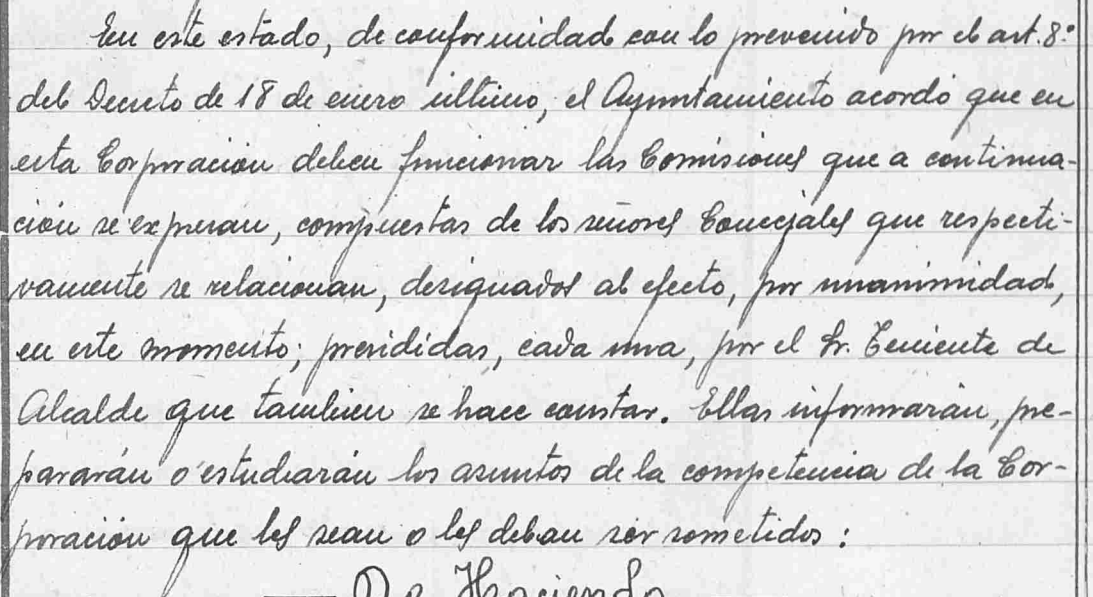 En este estado, de conformidad con lo prevenido por el art. 8º
del Decreto de 18 de enero último, el Ayuntamiento acordó que en
esta Corporación deben funcionar las Comisiones que a continua-
ción se expresan, compuestas de los señores Concejales que respecti-
vamente se relacionan, designados al efecto, por unanimidad,
en este momento; presididas, cada una, por el Sr. Teniente de
Alcalde que tambien se hace constar. Ellas informarán, pre-
pararán o estudiarán los asuntos de la competencia de la Cor-
poración que les sean o les deban ser sometidos:
De Hacienda